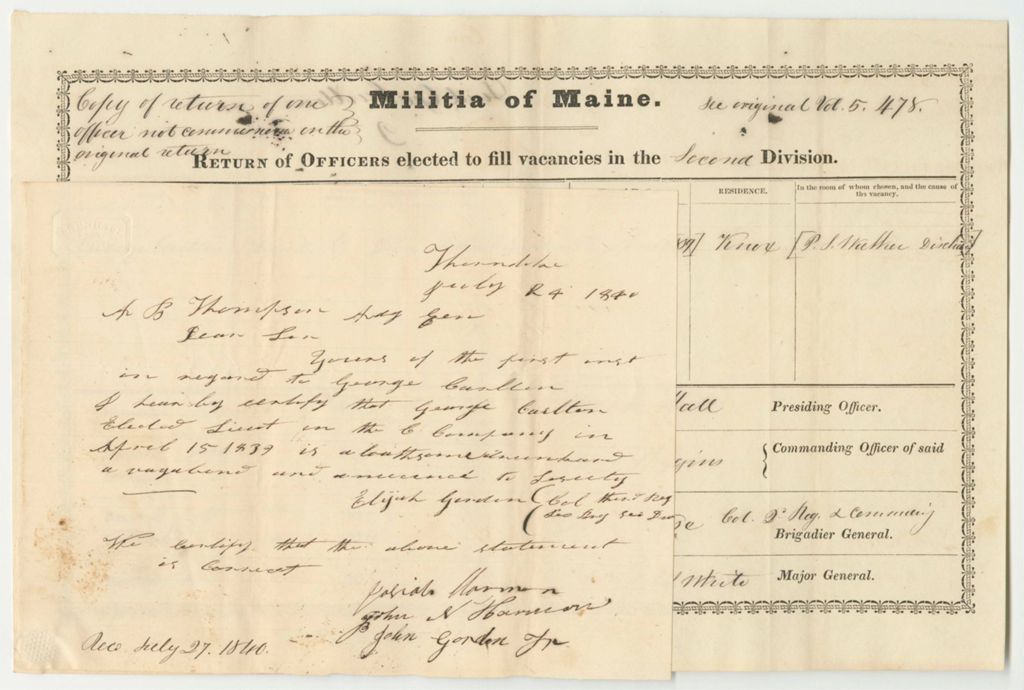 Copy of return of one
officer not commissioned on the
original return
Militia of Maine.
See original Vol. 5. 478.
RETURN of OFFICERS elected to fill vacancies in the Second Division.
RESIDENCE.
In the room of whom chosen, and the cause of
the vacancy.
Knox
[P. S. Walker
Presiding Officer.
Commanding Officer of said
Col. 3d Reg. & Commanding
Brigadier General.
White
Major General.
Thorndike
July 24 1840
A B Thompson Adj Gen
Dear Sir
Yours of the first inst
in regard to George Carlton
I hearby certify that George Carlton
Elected Lieut in the C Company in
April 15 1839 is a loathsome drunkard
a vagabond and a nuicence to Society
Elijah Gordon
Col third Reg
We Certify that the above statement
is Correct
Josiah Harmon
John N Harmon
John Gordon Jr
Rec July 27. 1840.